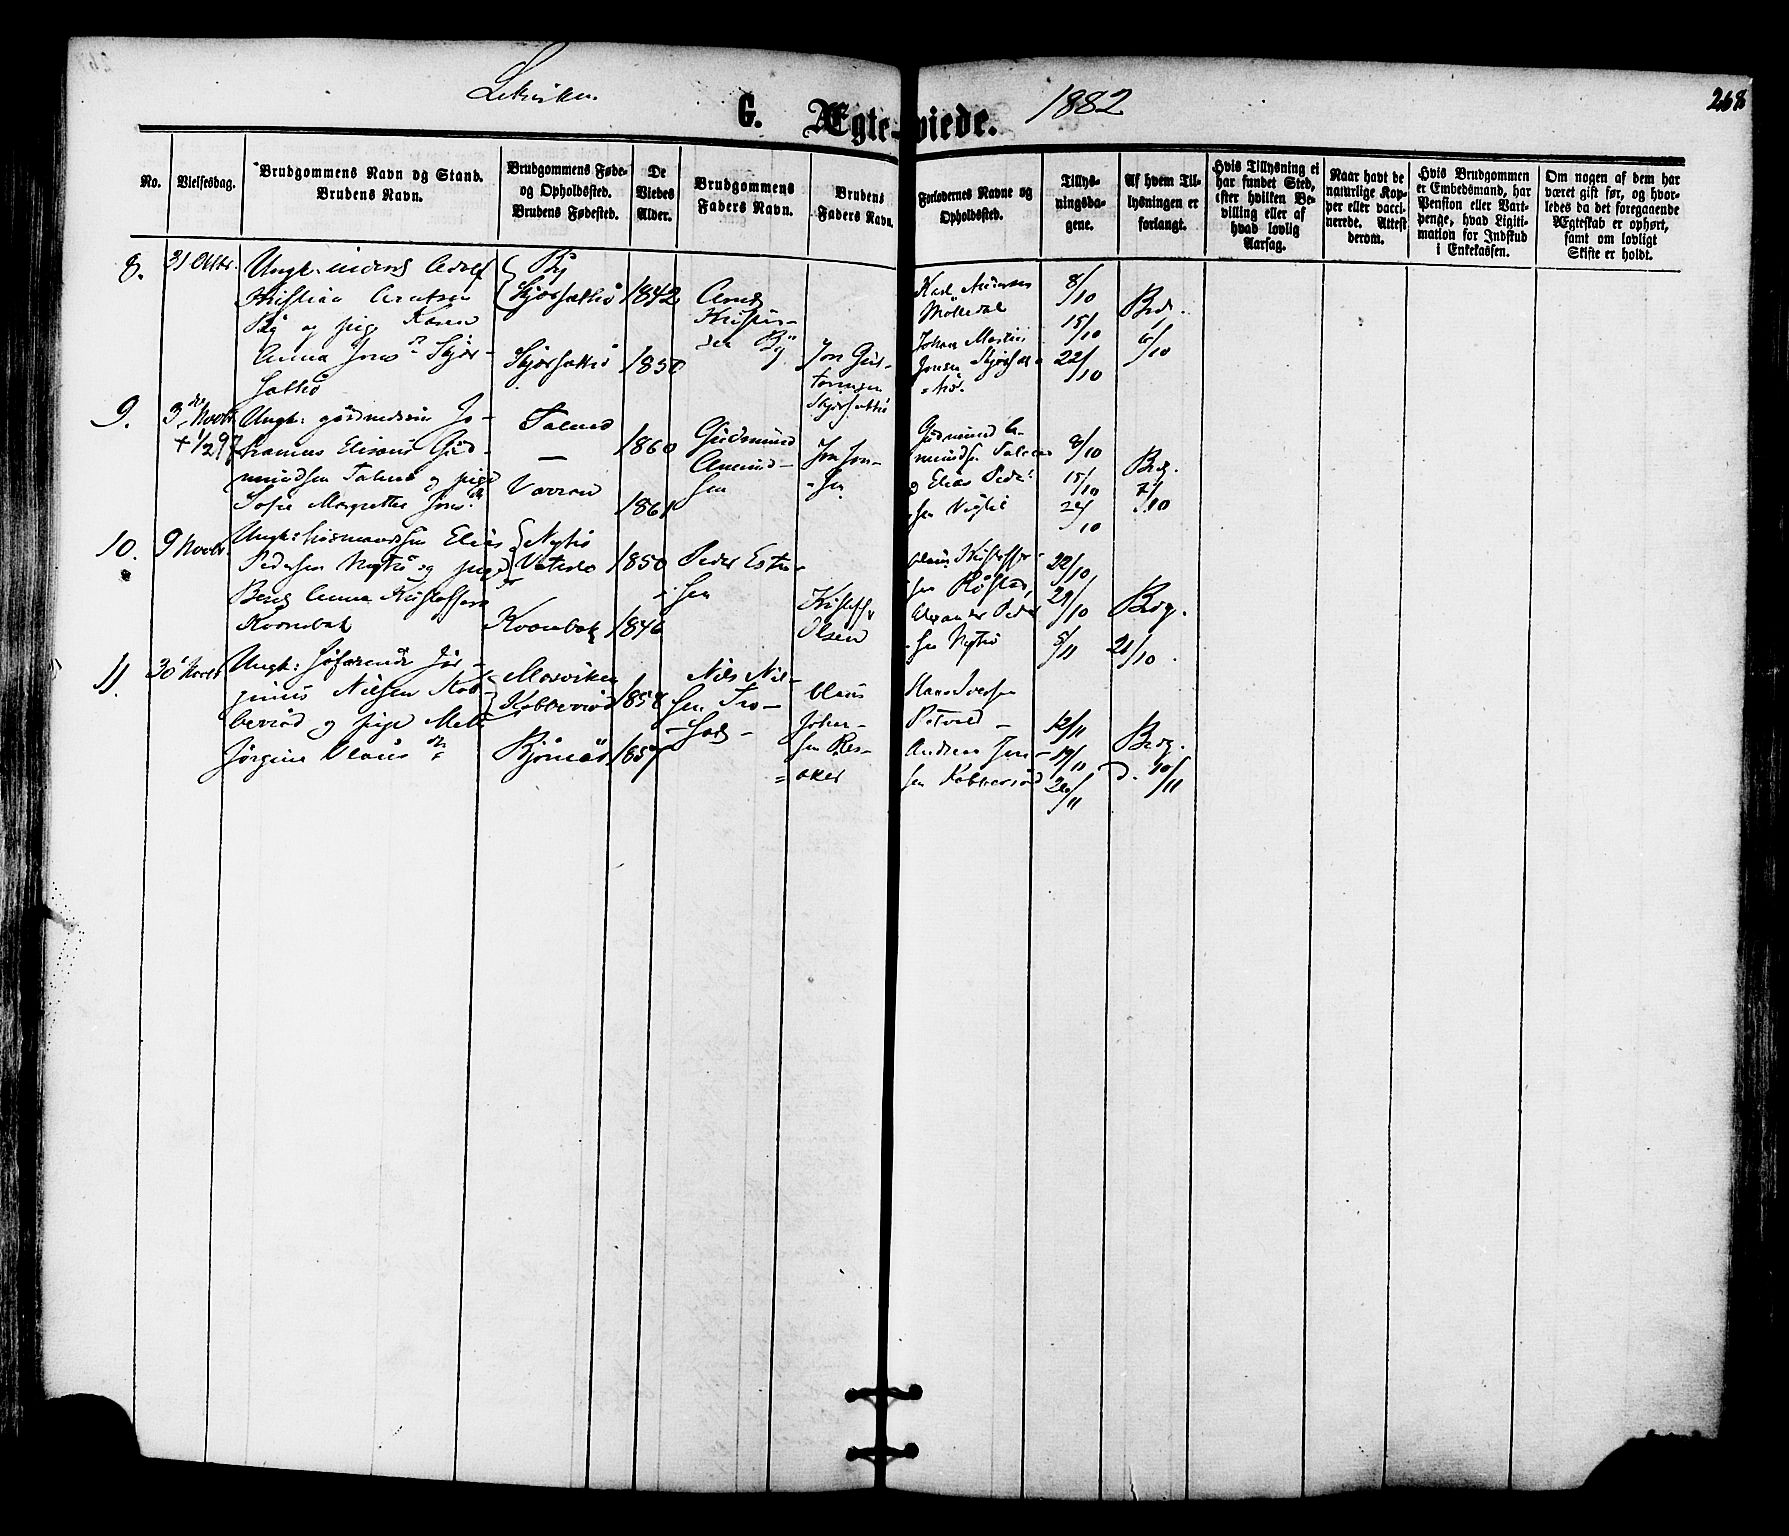 Leksviken.
1882
268
G. Ægte-viede.
No.
Vielsesdag.
Brudgommens Navn og Stand.
Brudens Navn.
Brudgommens Føde-
og Opholdssted.
Brudens Fødested.
De
Viedes
Alder.
Brudgommens
Faders Navn.
Brudens
Faders Navn.
Forlovernes Navne og
Opholdssted.
Tillys-
ningsda-
gene.
Af hvem Til-
lysningen er
forlangt.
Hvis Tillysning ei
har fundet Sted,
efter hvilken Be-
villing eller af
hvad lovlig
Aarsag.
Naar havt de
naturlige Kop-
per eller vacci-
nerede. Attest
derom.
Hvis Brudgommen
er Embedsmand, har
Pension eller Vart-
penge, hvad Ligiti-
mation for Indskud
i Enkekassen.
Om nogen af dem har
været gift før, og hvor-
ledes da det foregaaende
Ægteskab er ophørt,
samt om lovligt
Skifte er holdt.
8.
31 Oktbr.
Ungk. Adolf
Kristian Arntsen
By og pige Karen
Anna Jons Skjør-
By
1842
1850
Arnt
Kristia-
By
Jon
Karl Andersen
Mølledal
Johan Martin
Jensen
8/10
15/10
22/10
Brdg.
6/10
9.
3 Novbr.
+ 1/2 97
Ungk. Jo-
hannes Gud-
mundsen og pige
Sofie Margrethe Jons
Varran
1860
1861
Gudmund
Amund-
sen
Jon Jon-
sen
Gudmund A-
mundsen
Elias Peder-
sen
8/10
15/10
22/10
Brdg.
7/10
10.
9 Novbr.
Ungk: Husmandssøn Elias
Pedersen Nytrø og pige
Berit Anna Kristoffers
Kvernbak
Nytrø
Kvernbak
1850
1846
Peder
sen
Kristoffer
Olsen
Olaus Kristoffer-
sen Røstad,
Peder-
sen Nytrø
22/10
29/10
5/11
Brdg.
21/10
11.
30 Novbr
Ungk: Søfarende Jør-
ginus Nilsen Kob-
berrød og pige Meli
Jørgine Olaus
Mosviken
Kobberrød
Bjørnås
1858
1857
Nils Nil-
sen
Olaus
Johan-
sen
aker
Hans Iversen
Andreas Jen-
sen Kobberrød
12/11
19/11
26/11
Brdg.
d. 10/11